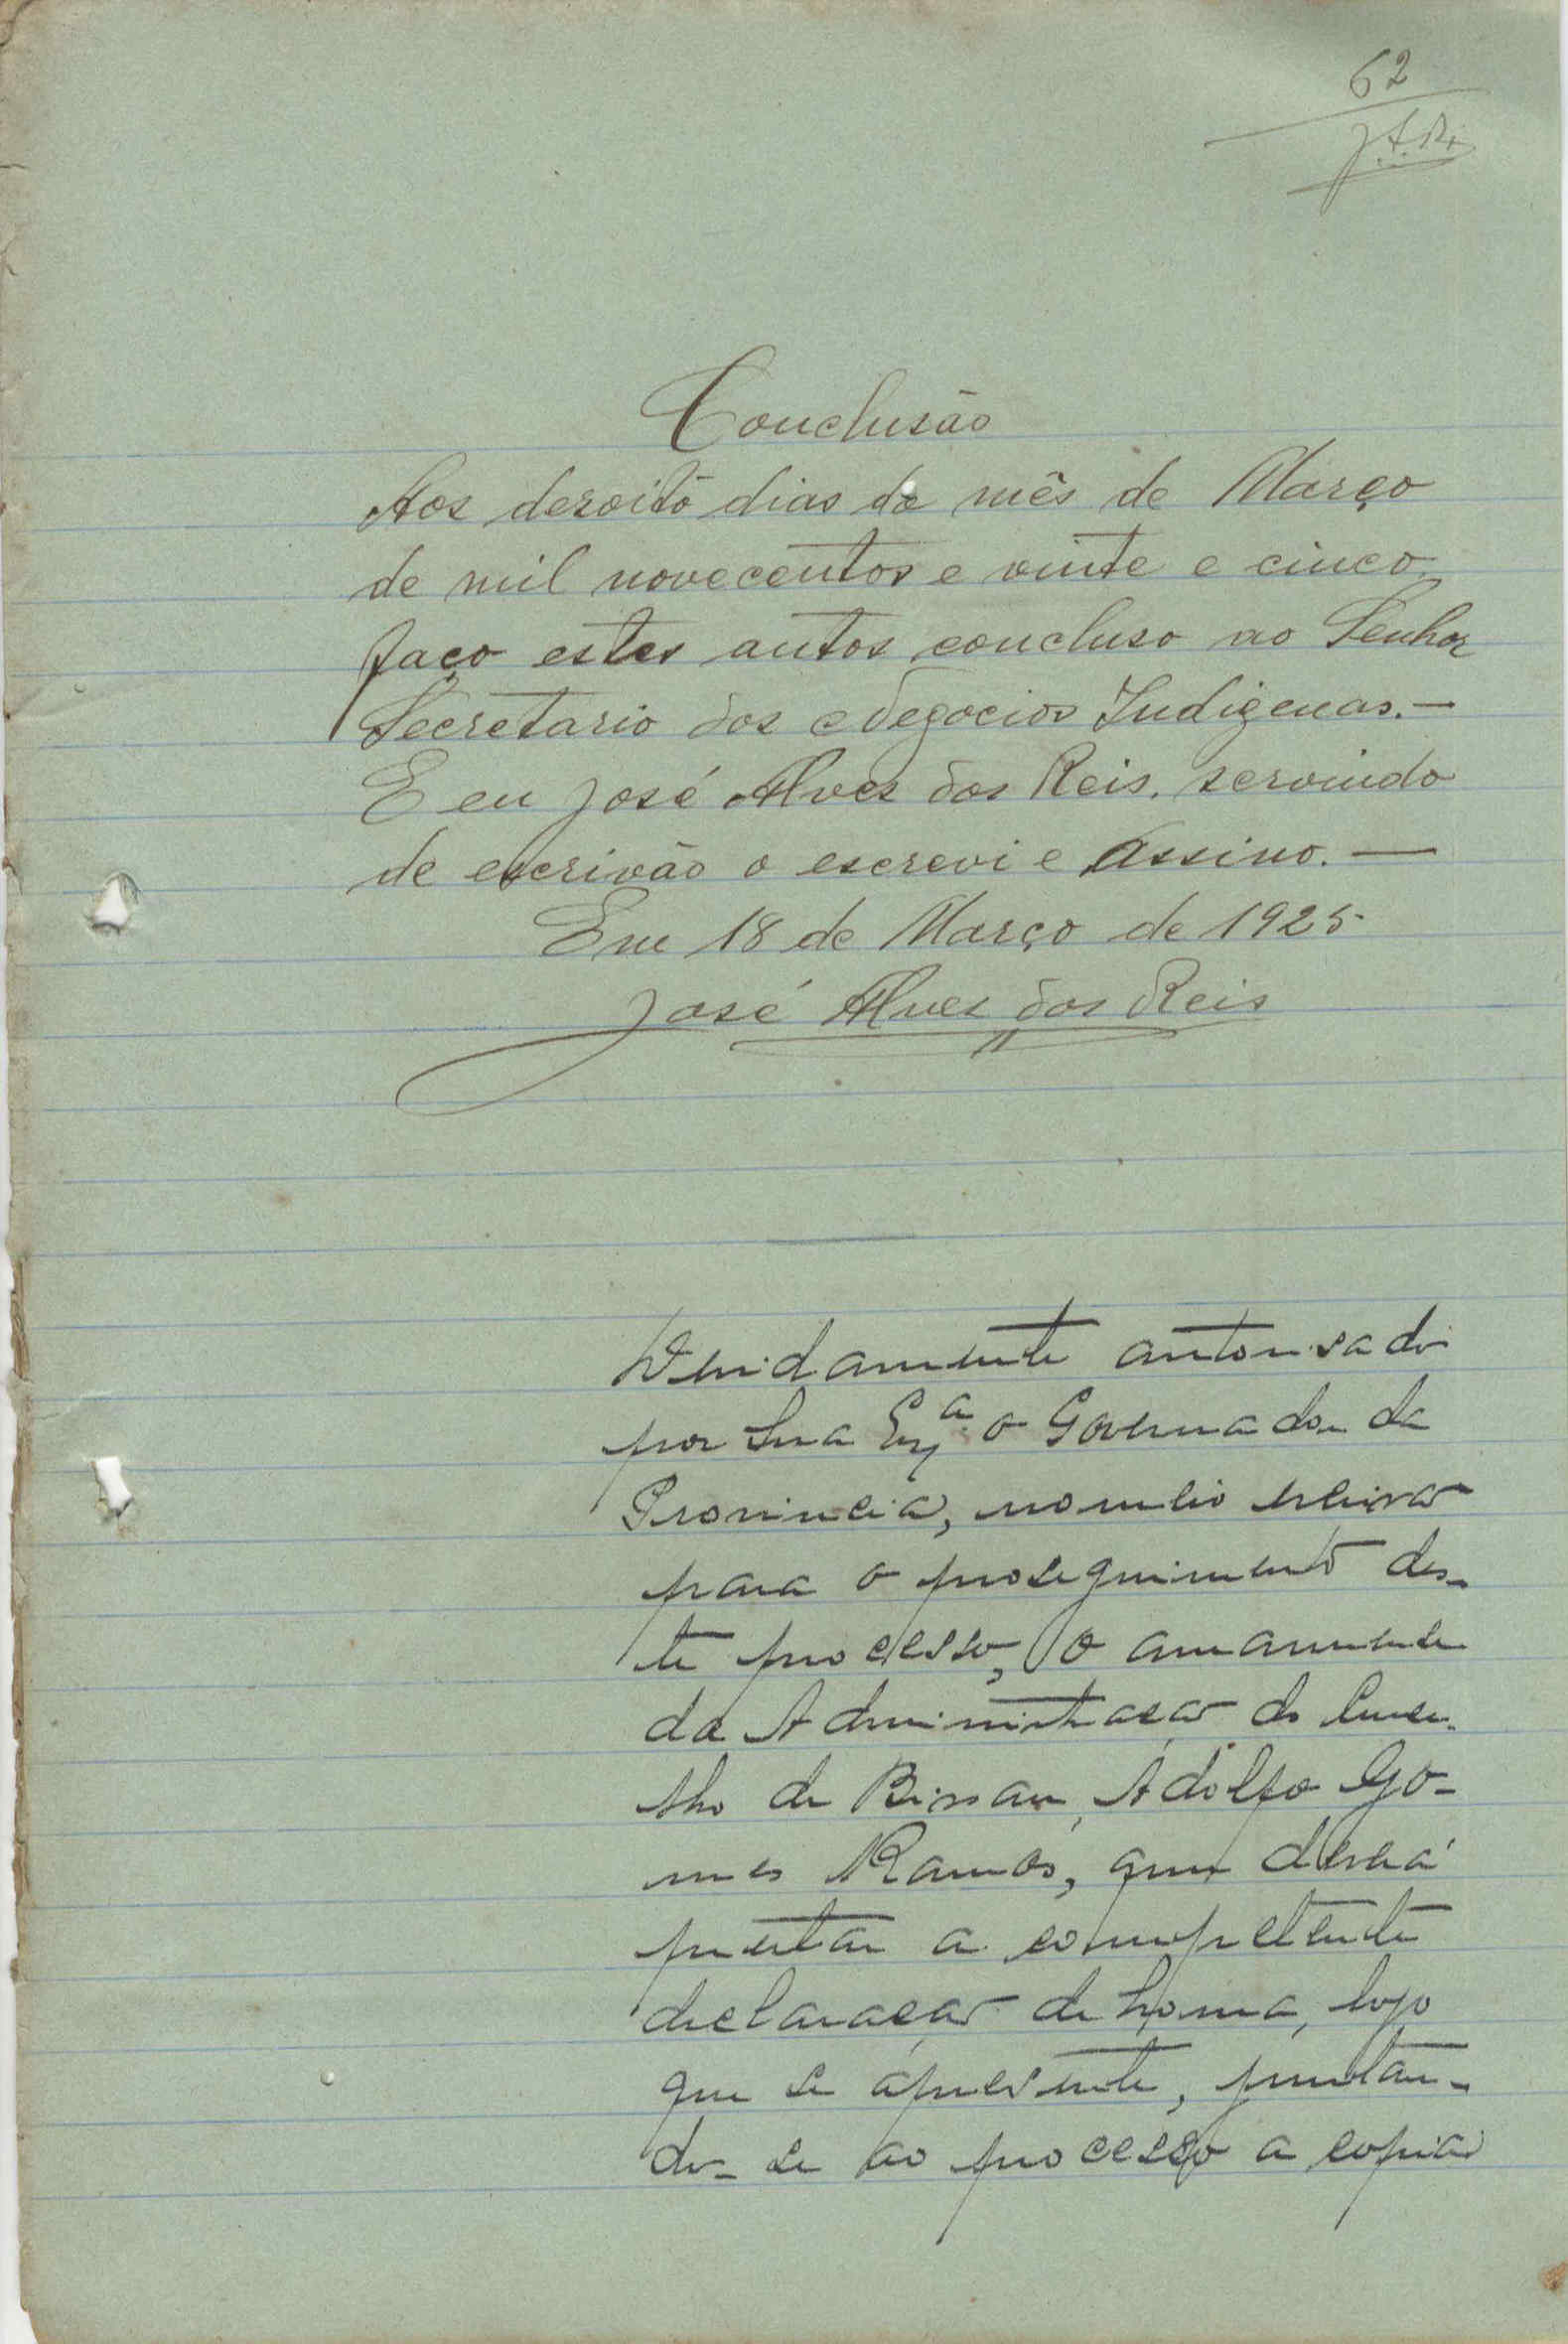 62
J.A.R.
Conclusão
Aos desoito dias do mês de Março
de mil novecentos e vinte e cinco,
faço estes autos concluso ao Senhor
Secretario dos Negocios Indigenas.—
E eu José Alves dos Reis, servindo
de escrivão o escrevi e assino.—
Em 18 de Março de 1925
José Alves dos Reis
Devidamente autorisado
por Sua Exª o Governador da
Provincia, nomeio escrivão
para o proseguimento des-
te processo, o amanuense
da Administração do Conce-
lho de Bissau, Adolfo Go-
mes Ramos, que deverá
prestar a competente
declaração de honra, logo
que se apresente, juntan-
do-se ao processo a copia